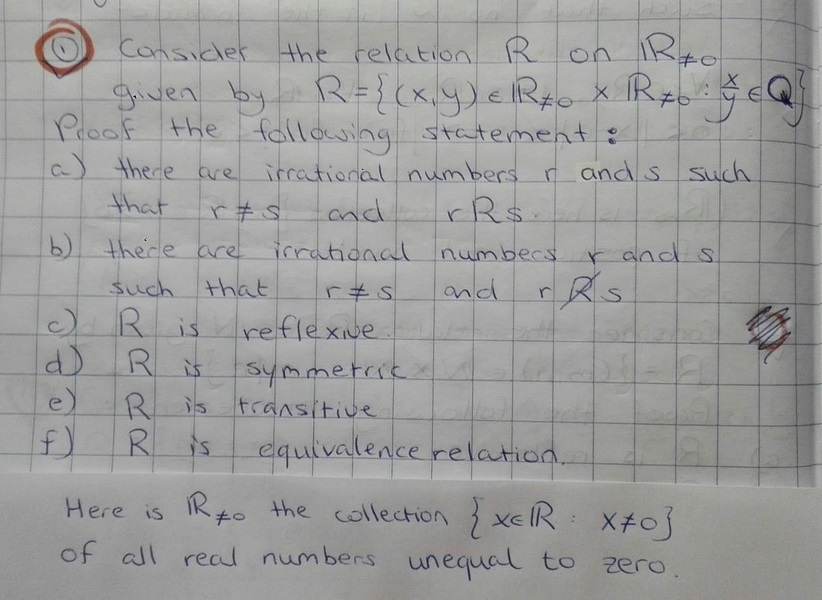 ① Consider the relation R on ℝ≠0
given by R={(x,y)∈ℝ≠0 × ℝ≠0 : x/y ∈ ℚ}
Proof the following statement:
a) there are irrational numbers r and s such
that r≠s and rRs.
b) there are irrational numbers r and s
such that r≠s and r R̸ s
c) R is reflexive.
d) R is symmetric
e) R is transitive
f) R is equivalence relation.
Here is ℝ≠0 the collection {x∈ℝ : x≠0}
of all real numbers unequal to zero.